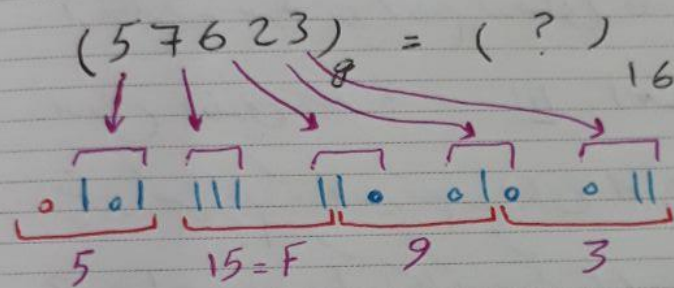 (57623)8 = ( ? )16
0101 111 110 010 011
5 15=F 9 3